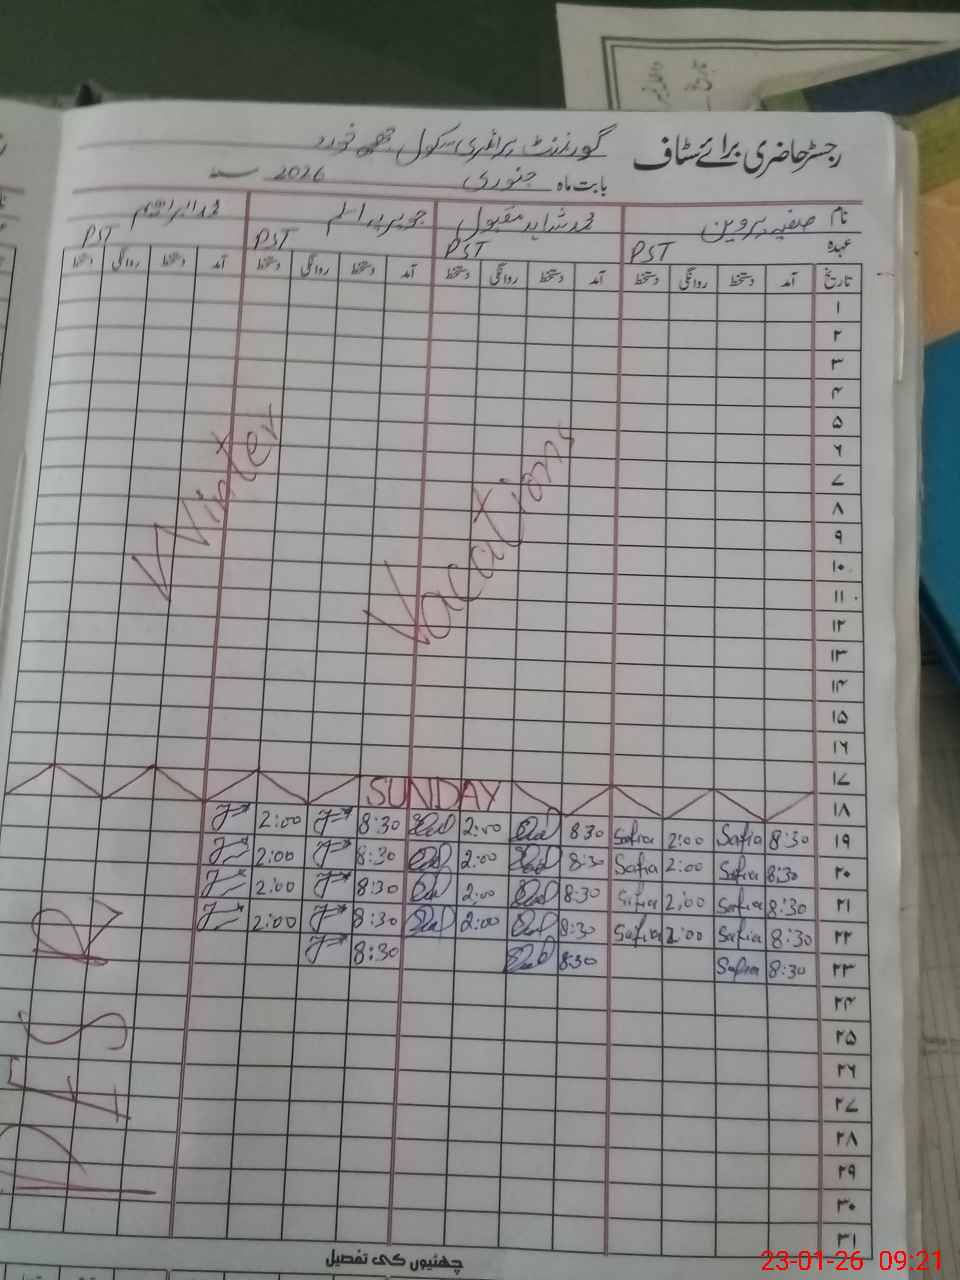 رجسٹر حاضری برائے سٹاف گورنمنٹ پرائمری سکول
بابت ماہ جنوری 2026 سنہ
نام صفیہ پروین محمد شاہد مقبول جویریہ اسلم محمد ابراہیم
عہدہ PST PST PST PST
تاریخ آمد دستخط روانگی دستخط آمد دستخط روانگی دستخط آمد دستخط روانگی دستخط آمد دستخط روانگی دستخط
۱
۲
۳
۴
۵
۶
۷
۸
۹
۱۰
۱۱
۱۲
۱۳
۱۴
۱۵
۱۶
۱۷
Winter Vacations
۱۸ SUNDAY
۱۹ 8:30 Safia 2:00 Safia 8:30 2:00 8:30 2:00
۲۰ 8:30 Safia 2:00 Safia 8:30 2:00 8:30 2:00
۲۱ 8:30 Safia 2:00 Safia 8:30 2:00 8:30 2:00
۲۲ 8:30 Safia 2:00 Safia 8:30 2:00 8:30 2:00
۲۳ 8:30 Safia 8:30 8:30
۲۴
۲۵
۲۶
۲۷
۲۸
۲۹
۳۰
۳۱
چھٹیوں کی تفصیل
23-01-26 09:21